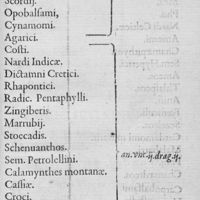 Scordij.
Opobalsami,
Cynamomi.
Agarici.
Costi.
Nardi Indicæ.
Dictamni Cretici.
Rhapontici.
Radic. Pentaphylli.
Zingiberis.
Marrubij.
Stoecadis.
Schenuanthos.
Sem. Petroselini.
Calamynthes montanæ.
Cassiæ.
Croci.
an. vnc. ij. drag. ij.